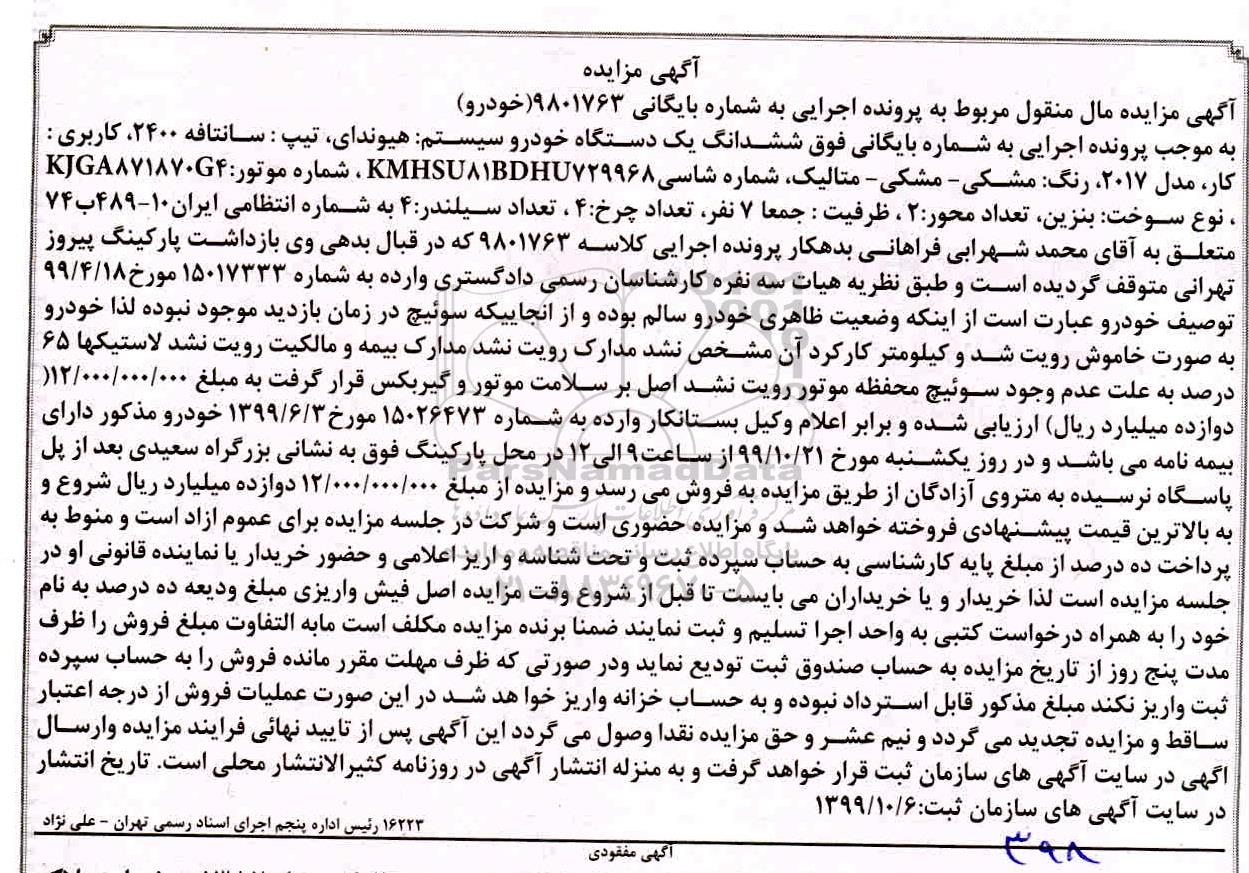 آگهی مزایده
آگهی مزایده مال منقول مربوط به پرونده اجرایی به شماره بایگانی ۹۸۰۱۷۶۳(خودرو)
به موجب پرونده اجرایی به شماره بایگانی فوق ششدانگ یک دستگاه خودرو سیستم: هیوندای، تیپ : سانتافه ۲۴۰۰، کاربری :
کار، مدل ۲۰۱۷، رنگ: مشکی- مشکی- متالیک، شماره شاسی KMHSU۸۱BDHU۷۲۹۹۶۸ ، شماره موتور: KJGA۸۷۱۸۷۰G۴
، نوع سوخت: بنزین، تعداد محور:۲ ، ظرفیت : جمعا ۷ نفر، تعداد چرخ:۴ ، تعداد سیلندر:۴ به شماره انتظامی ایران۱۰-۴۸۹ب۷۴
متعلق به آقای محمد شهرابی فراهانی بدهکار پرونده اجرایی کلاسه ۹۸۰۱۷۶۳ که در قبال بدهی وی بازداشت پارکینگ پیروز
تهرانی متوقف گردیده است و طبق نظریه هیات سه نفره کارشناسان رسمی دادگستری وارده به شماره ۱۵۰۱۷۳۳۳ مورخ۹۹/۴/۱۸
توصیف خودرو عبارت است از اینکه وضعیت ظاهری خودرو سالم بوده و از انجاییکه سوئیچ در زمان بازدید موجود نبوده لذا خودرو
به صورت خاموش رویت شد و کیلومتر کارکرد آن مشخص نشد مدارک رویت نشد مدارک بیمه و مالکیت رویت نشد لاستیکها ۶۵
درصد به علت عدم وجود سوئیچ محفظه موتور رویت نشد اصل بر سلامت موتور و گیربکس قرار گرفت به مبلغ ۱۲/۰۰۰/۰۰۰/۰۰۰(
دوازده میلیارد ریال) ارزیابی شده و برابر اعلام وکیل بستانکار وارده به شماره ۱۵۰۲۶۴۷۳ مورخ۱۳۹۹/۶/۳ خودرو مذکور دارای
بیمه نامه می باشد و در روز یکشنبه مورخ ۹۹/۱۰/۲۱ از ساعت۹ الی۱۲ در محل پارکینگ فوق به نشانی بزرگراه سعیدی بعد از پل
پاسگاه نرسیده به متروی آزادگان از طریق مزایده به فروش می رسد و مزایده از مبلغ ۱۲/۰۰۰/۰۰۰/۰۰۰ دوازده میلیارد ریال شروع و
به بالاترین قیمت پیشنهادی فروخته خواهد شد و مزایده حضوری است و شرکت در جلسه مزایده برای عموم ازاد است و منوط به
پرداخت ده درصد از مبلغ پایه کارشناسی به حساب سپرده ثبت و تحت شناسه واریز اعلامی و حضور خریدار یا نماینده قانونی او در
جلسه مزایده است لذا خریدار و یا خریداران می بایست تا قبل از شروع وقت مزایده اصل فیش واریزی مبلغ ودیعه ده درصد به نام
خود را به همراه درخواست کتبی به واحد اجرا تسلیم و ثبت نمایند ضمنا برنده مزایده مکلف است مابه التفاوت مبلغ فروش را ظرف
مدت پنج روز از تاریخ مزایده به حساب صندوق ثبت تودیع نماید ودر صورتی که ظرف مهلت مقرر مانده فروش را به حساب سپرده
ثبت واریز نکند مبلغ مذکور قابل استرداد نبوده و به حساب خزانه واریز خوا هد شد در این صورت عملیات فروش از درجه اعتبار
ساقط و مزایده تجدید می گردد و نیم عشر و حق مزایده نقدا وصول می گردد این آگهی پس از تایید نهائی فرایند مزایده وارسال
اگهی در سایت آگهی های سازمان ثبت قرار خواهد گرفت و به منزله انتشار آگهی در روزنامه کثیرالانتشار محلی است. تاریخ انتشار
در سایت آگهی های سازمان ثبت:۱۳۹۹/۱۰/۶
۱۶۲۲۳ رئیس اداره پنجم اجرای اسناد رسمی تهران - علی نژاد
۳۹۸
آگهی مفقودی
ParsNamadData
پایگاه اطلاع رسانی مناقصه و مزایده
۰۲۱-۸۸۳۴۹۶۷۰-۵